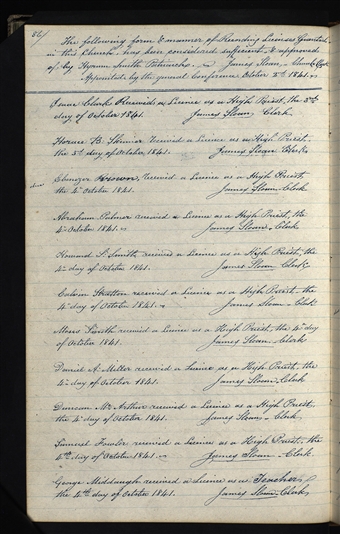 86/
The following form & manner of Recording Licenses Granted
in this Church has been considered sufficient & approved
of by Hyrum Smith Patriarch. James Sloan, Church Clerk
Appointed by the annual Conference October 2d 1841.
Isaac Clark Received a Licence as a High Priest, the 3rd
day of October 1841. James Sloan, Clerk.
Horace B. Skinner received a Licence as a High Priest,
the 3d day of October 1841. James Sloan Clerk,
Ebenezer received a Licence as a High Priest
the 4th October 1841. James Sloan, Clerk
Abraham Palmer received a Licence as a High Priest, the
4th October 1841. James Sloan, Clerk
L. Smith received a Licence as a High Priest, the
4th day of October 1841. James Sloan Clerk
Calvin Stratton received a Licence as a High Priest the
4th day of October 1841. James Sloan, Clerk
Moses Smith received a Licence as a High Priest, the 4th day
of October 1841. James Sloan, Clerk
Daniel A. Miller received a Licence as a High Priest, the
4th day of October 1841. James Sloan, Clerk
Duncan Mc.Arthur received a Licence as a High Priest,
the 4th day of October 1841. James Sloan, Clerk
Samuel Fowler received a Licence as a High Priest, the
4th day of October 1841. James Sloan Clerk.
George Middaugh received a Licence as a Teacher,
the 4th day of October 1841. James Sloan Clerk,